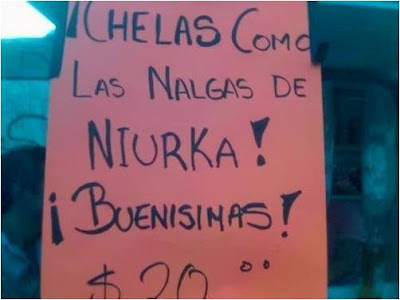 ¡CHELAS COMO
LAS NALGAS DE
NIURKA!
¡BUENISIMAS!
$20 °°